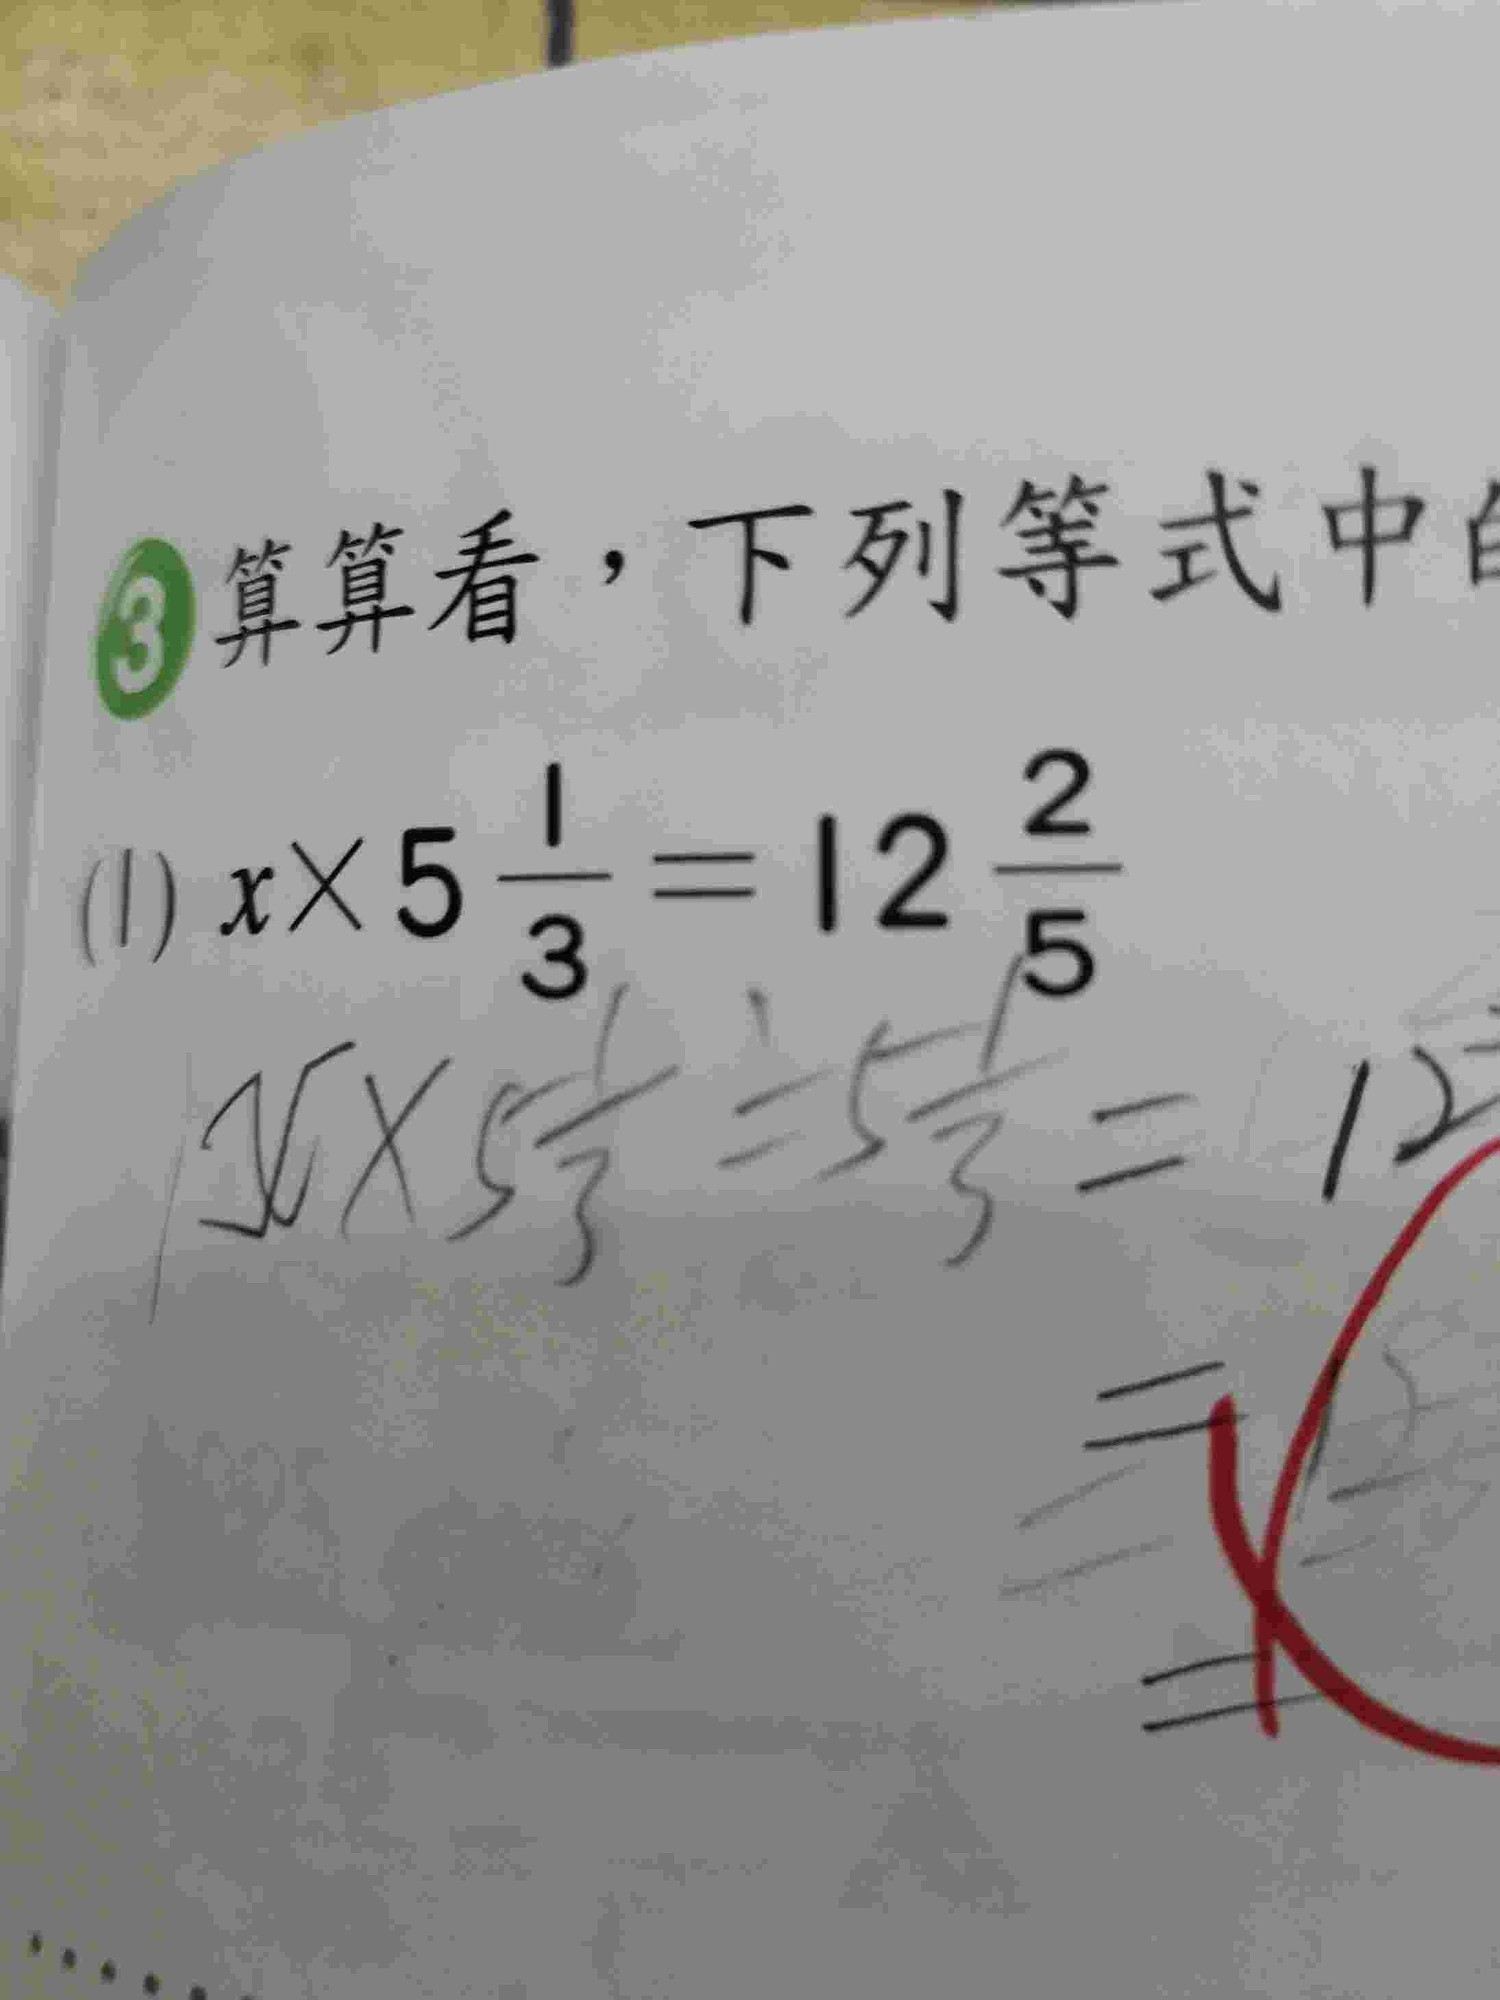 3 算算看，下列等式中的
(1) x×5 1/3 = 12 2/5
x×5 1/3 ÷ 5 1/3 = 12
=
=